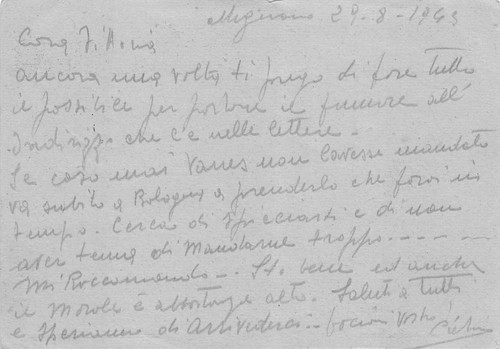 29-8-1943
Cara
ancora una volta ti prego di fare tutto
il possibile per portare il fumare all'
indirizzo che c'è nelle lettere -
Se caso mai Vanes non l'avesse mandato
va subito a Bologna a prenderlo che farai in
tempo. Cerca di spicciarti e di non
aver tema di mandarne troppo - - - - -
Mi Raccomando -. Sto bene ed anche
il morale è abbastanza alto. Saluti a tutti
e speriamo di Arrivederci - bacioni Vostro